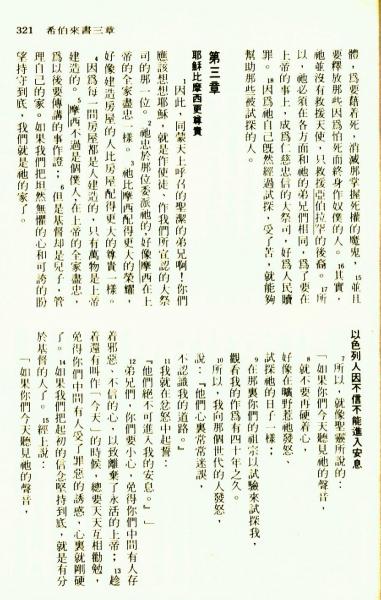 321 希伯來書三章
體,為要藉着死,消滅那掌握死權的魔鬼,15並且
要釋放那些因為怕死而終身作奴僕的人。16其實,
祂並沒有救援天使,只救援亞伯拉罕的後裔。17所
以,祂必須在各方面和祂的弟兄們相同,為了要在
上帝的事上,成為仁慈忠信的大祭司,好為人民贖
罪。18因為祂自己既然經過試探,受了苦,就能夠
幫助那些被試探的人。
第三章
耶穌比摩西更尊貴
1因此,同蒙天上呼召的聖潔的弟兄啊!你們
應該想想耶穌,就是作使徒、作我們所宣認的大祭
司的那一位。2祂忠於那位委派祂的,好像摩西在上
帝的全家盡忠一樣。3祂比摩西配得更大的榮耀,
好像建造房屋的人比房屋配得更大的尊貴一樣。
4因為每一間房屋都是人建造的,只有萬物是上帝
建造的。5摩西不過是個僕人,在上帝的全家盡忠,
為以後要傳講的事作證;6但是基督卻是兒子,管
理自己的家。如果我們把坦然無懼的心和可誇的盼
望持守到底,我們就是祂的家了。
以色列人因不信不能進入安息
7所以,就像聖靈所說的:
「如果你們今天聽見祂的聲音,
8就不要再硬着心,
好像在曠野惹祂發怒、
試探祂的日子一樣;
9在那裏你們的祖宗以試驗來試探我,
觀看我的作為有四十年之久。
10所以,我向那個世代的人發怒,
說:『他們心裏常常迷誤,
不認識我的道路。』
11我就在忿怒中起誓:
『他們絕不可進入我的安息。』」
12弟兄們,你們要小心,免得你們中間有人存
着邪惡、不信的心,以致離棄了永活的上帝;13趁
着還有叫作「今天」的時候,總要天天互相勸勉,
免得你們中間有人受了罪惡的誘惑,心裏就剛硬
了。14如果我們把起初的信念堅持到底,就是有分
於基督的人了。15經上說:
「如果你們今天聽見祂的聲音,